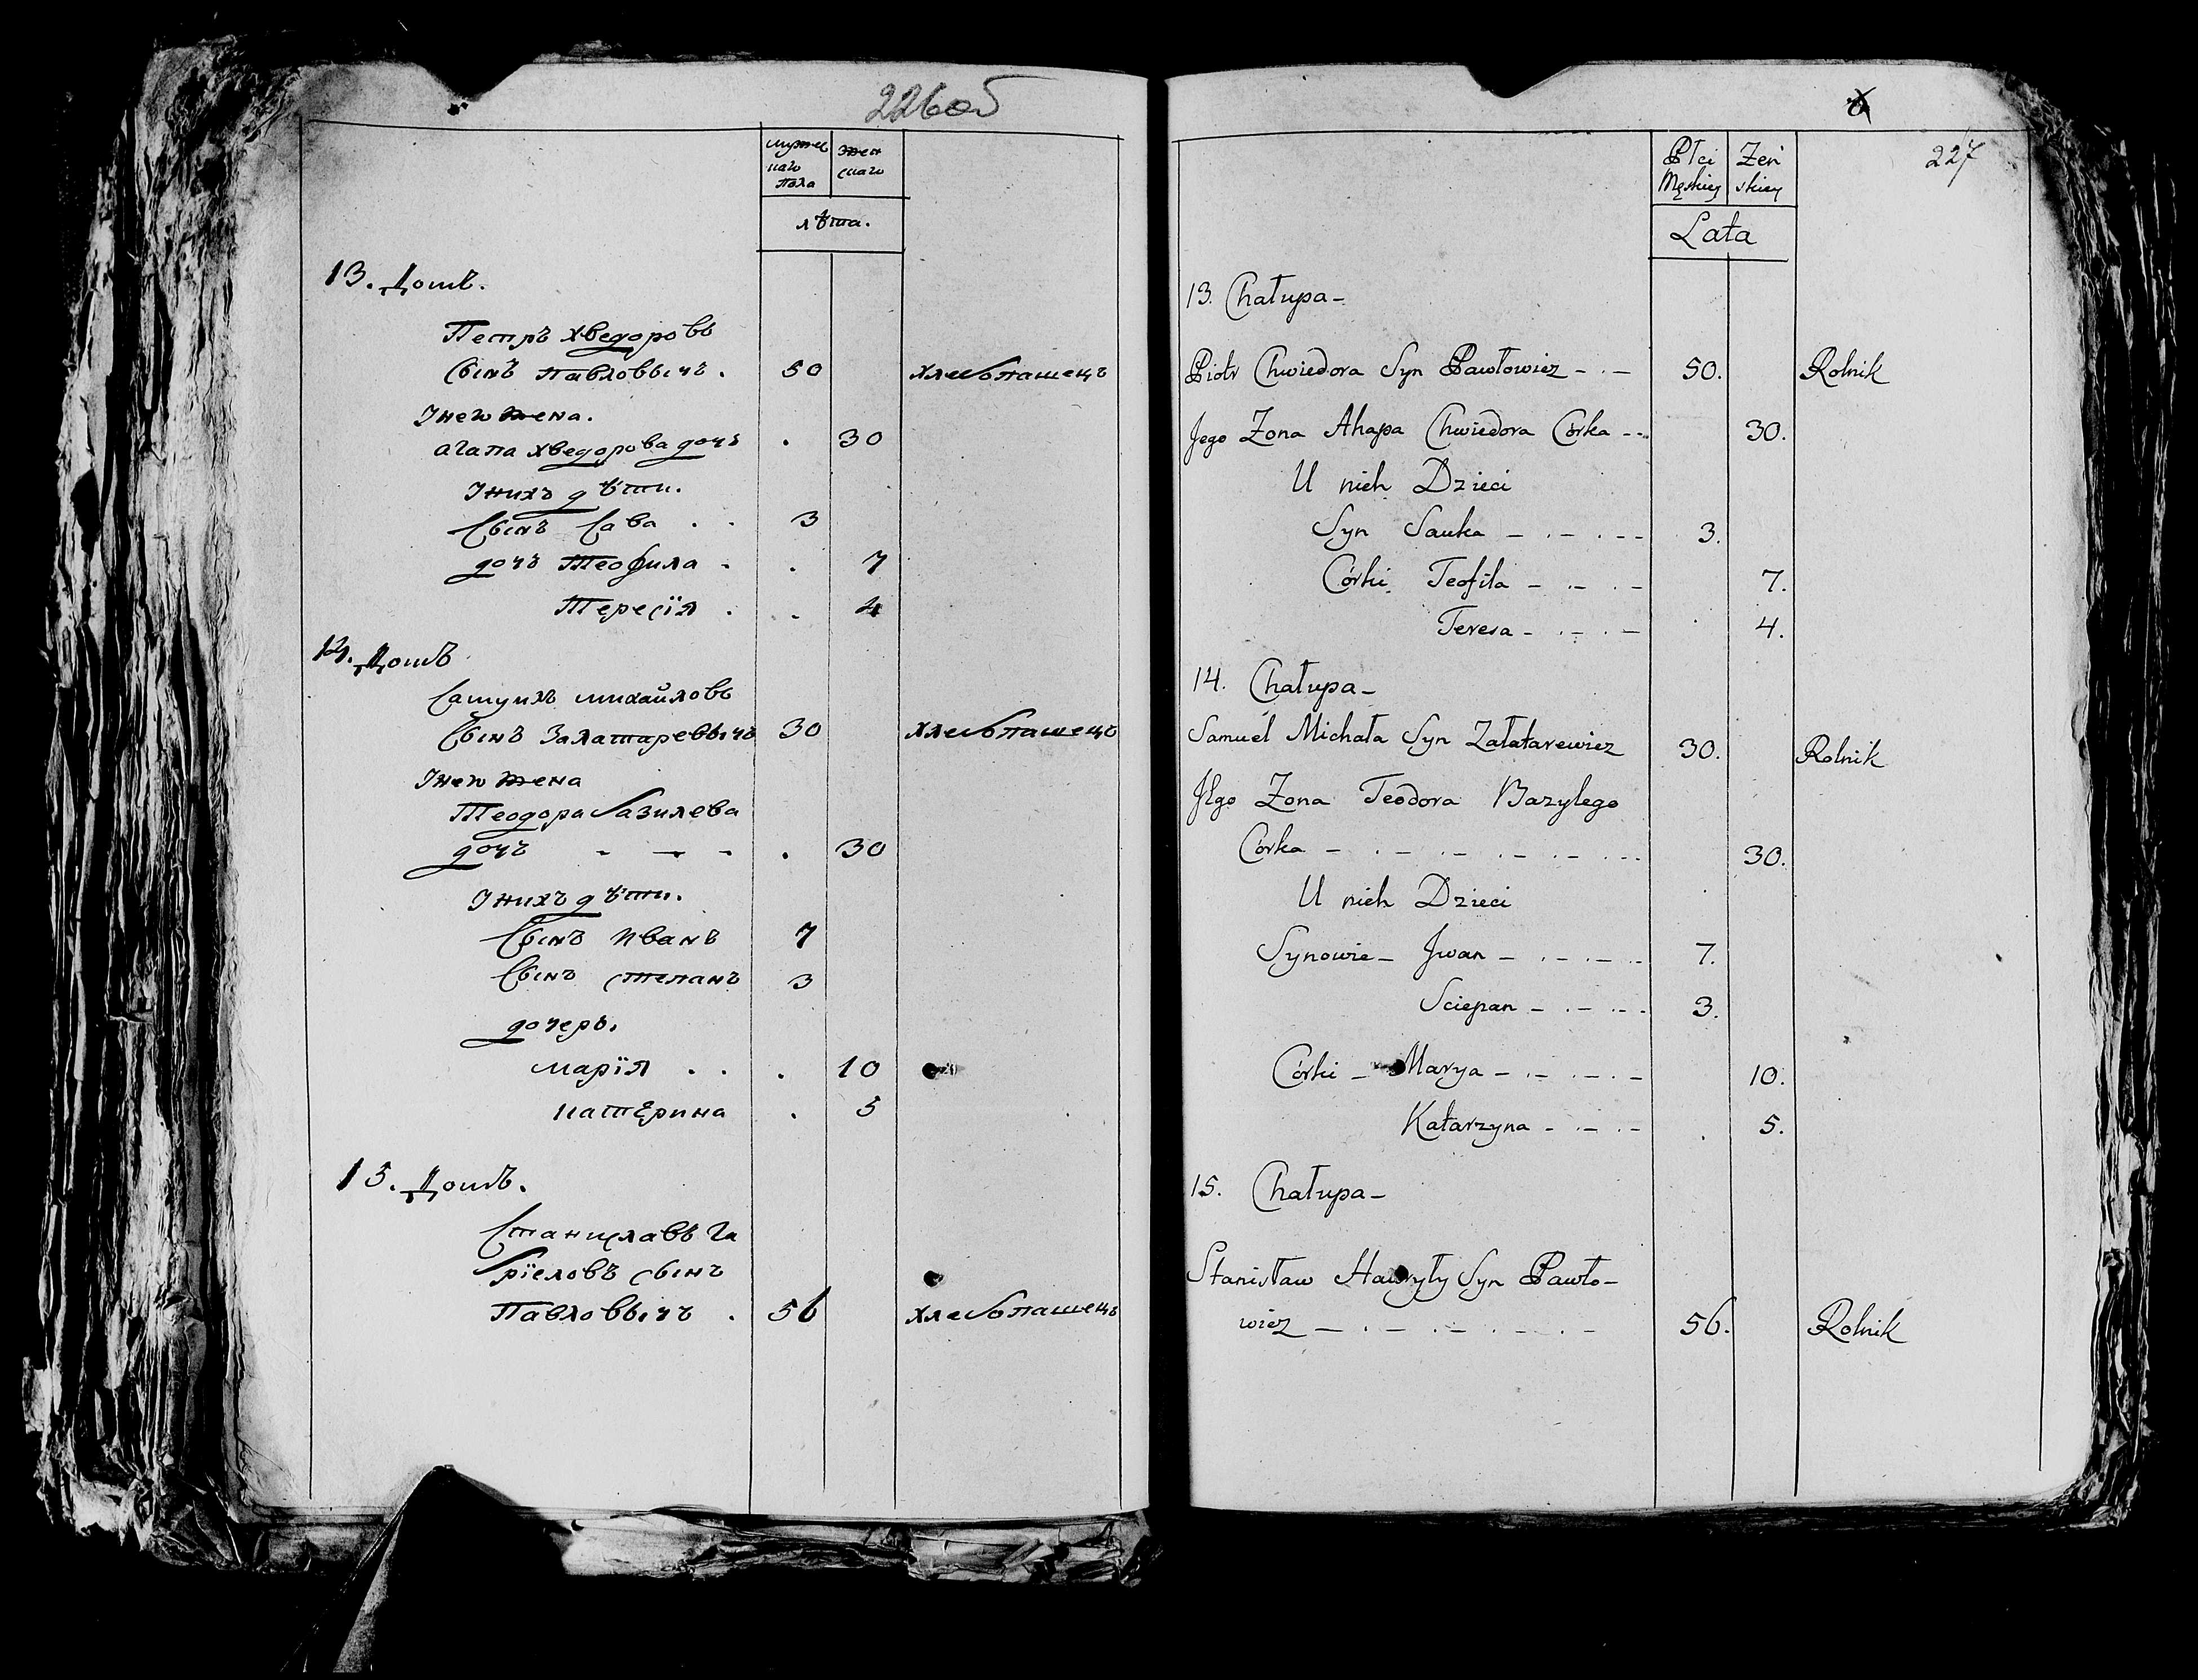 226об
мужес
каго
пола
жен
скаго
лѣта.
13. Домъ.
Петръ хведоровъ
Сынъ Павловычъ. 50 хлебопашецъ
Iнего жена.
агапа хведорова дочь . 30
Iнихъ дѣти.
Сынъ Сава . . 3
дочь Теофила . . 7
Тересiя . . 4
14. Домъ
Самуилъ михайловъ
Сынъ Залатаревычъ 30 хлебопашецъ
Iнего жена
Теодора базилева
дочь - - - . 30
Iнихъ дѣти.
Сынъ иванъ 7
Сынъ степанъ 3
дочеръ.
марїя . . . 10
катерина . 5
15. Домъ.
Станиславъ га
брїеловъ сынъ
Павловычъ . 56 хлебопашецъ
227
Płci
Męskiey
Żeń
skiey
Lata
13. Chałupa -
Piotr Chwiedora Syn Pawłowicz - . - 50. Rolnik
Jego Zona Ahapa Chwiedora Córka - - 30.
U nich Dzieci
Syn Sauka - . - . - - 3.
Córki Teofila - . - . - 7.
Teresa - . - . - 4.
14. Chałupa -
Samuel Michała Syn Załatarewicz 30. Rolnik
Jego Zona Teodora Bazylego
Córka - . - . - . - . - . - - 30.
U nich Dzieci
Synowie - Jwan - . - . - . - 7.
Sciepan - . - . - - 3.
Córki - Marya - . - . - . - 10.
Katarzyna - . - . - 5.
15. Chałupa -
Stanisław Hawryły Syn Pawło-
wicz - . - . - . - . - 56. Rolnik